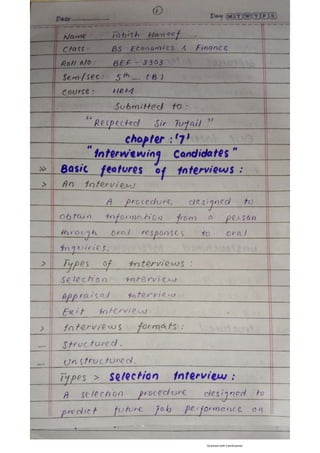 Date
Day M T W T F S
Name : Tabish Haneef
Class : BS Economics & Finance
Roll No : BEF - 3303
Sem/sec : 5th _ (B)
Course : HRM
Submitted to :
"Respected Sir Tufail"
chapter : '7'
"Interviewing Candidates"
» Basic features of Interviews :
> An Interview
A procedure designed to
obtain information from a person
through oral responses to oral
inquiries.
> Types of interviews :
Selection interview
Appraisal interview
Exit interview
> Interviews formats :
— Structured.
— Unstructured.
Types > Selection Interview :
A selection procedure designed to
predict future job performance on
Scanned with CamScanner